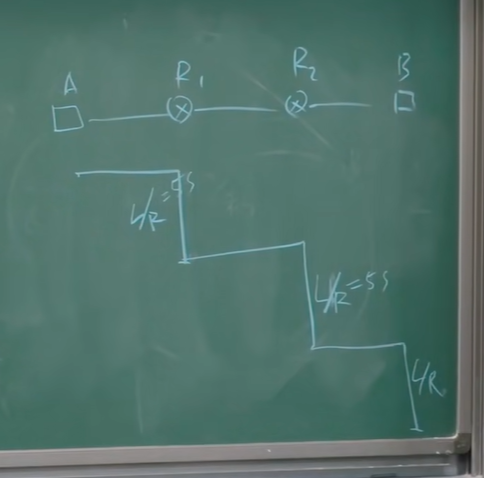 A R₁ R₂ B
L/R=5s
L/R=5s
L/R